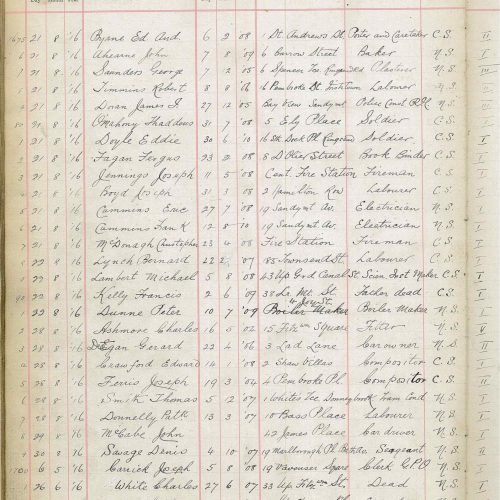 1675 21 8 '16 Byrne Ed And. 6 2 08 1 St. Andrews St. Porter and Caretaker C.S. II
21 8 '16 Ahearne John 7 8 '09 6 Barrow Street Baker N.S. I
21 8 '16 Saunders George 7 12 05 6 Spencer Tce Ringsend Rd Plasterer N.S.
21 8 '16 Timmins Robert 8 8 '06 16 Pembroke St. Labourer N.S.
21 8 '16 Doran James J. 27 12 05 Bay View Sandymt Police Const N.S.
21 8 '16 O'Mahony Thaddeus 31 7 '08 5 Ely Place Soldier C.S. I
21 8 '16 Doyle Eddie 30 6 '10 16 Sth Dock Pl. Ringsend Soldier C.S. I
21 8 '16 Fagan Fergus 23 2 08 8 D'Olier Street Book Binder C.S. I
21 8 '16 Jennings Joseph 11 5 08 Cent. Fire Station Fireman C.S. I
21 8 '16 Boyd Joseph 31 3 08 2 Hamilton Row Labourer C.S. I
21 8 '16 Cummins Eric 27 7 '08 19 Sandymt Av. Electrician N.S. I
21 8 '16 Cummins Fank 12 8 '10 19 Sandymt Av. Electrician N.S. I
21 8 '16 McDonagh Christopher 23 4 08 Fire Station Fireman C.S. I
22 8 '16 Lynch Bernard 22 2 '07 185 Townsend St. Labourer C.S. I
22 8 '16 Lambert Michael 5 8 08 43 Up Grd Canal St. Inst Maker C.S. I
90 22 8 '16 Kelly Francis 2 6 09 38 Lr. Mt. St. Father dead C.S. I
22 8 '16 Dunne Peter 10 7 '09 Boiler Maker Boiler Maker N.S. I
28 8 '16 Ashmore Charles 16 5 02 15 Fitzwm Square Fitter N.S. I
28 8 '16 Egan Gerard 22 4 '06 3 Lad Lane Car owner N.S. II
28 8 '16 Crawford Edward 14 '08 2 Shaw Villas Compositor C.S. I
28 8 '16 Ferris Joseph 19 3 '04 4 Pembroke Pl. Compositor C.S. I
28 8 '16 Smith Thomas 5 12 '07 1 Whites Tce Donnybrook Tram Cond N.S. I
28 8 '16 Donnelly Patk 13 3 '07 10 Bass Place Labourer N.S. I
29 8 '16 McCabe John 42 James Place Car driver N.S. I
30 8 '16 Savage Denis 4 10 '07 19 Marlborough Pl. Seageant N.S. I
1700 6 5 '16 Carrick Joseph 5 8 '08 19 Square Clerk G.P.O. N.S. I
26 6 '16 White Charles 27 6 '07 33 Up. Fitzwm St. Dead N.S. I